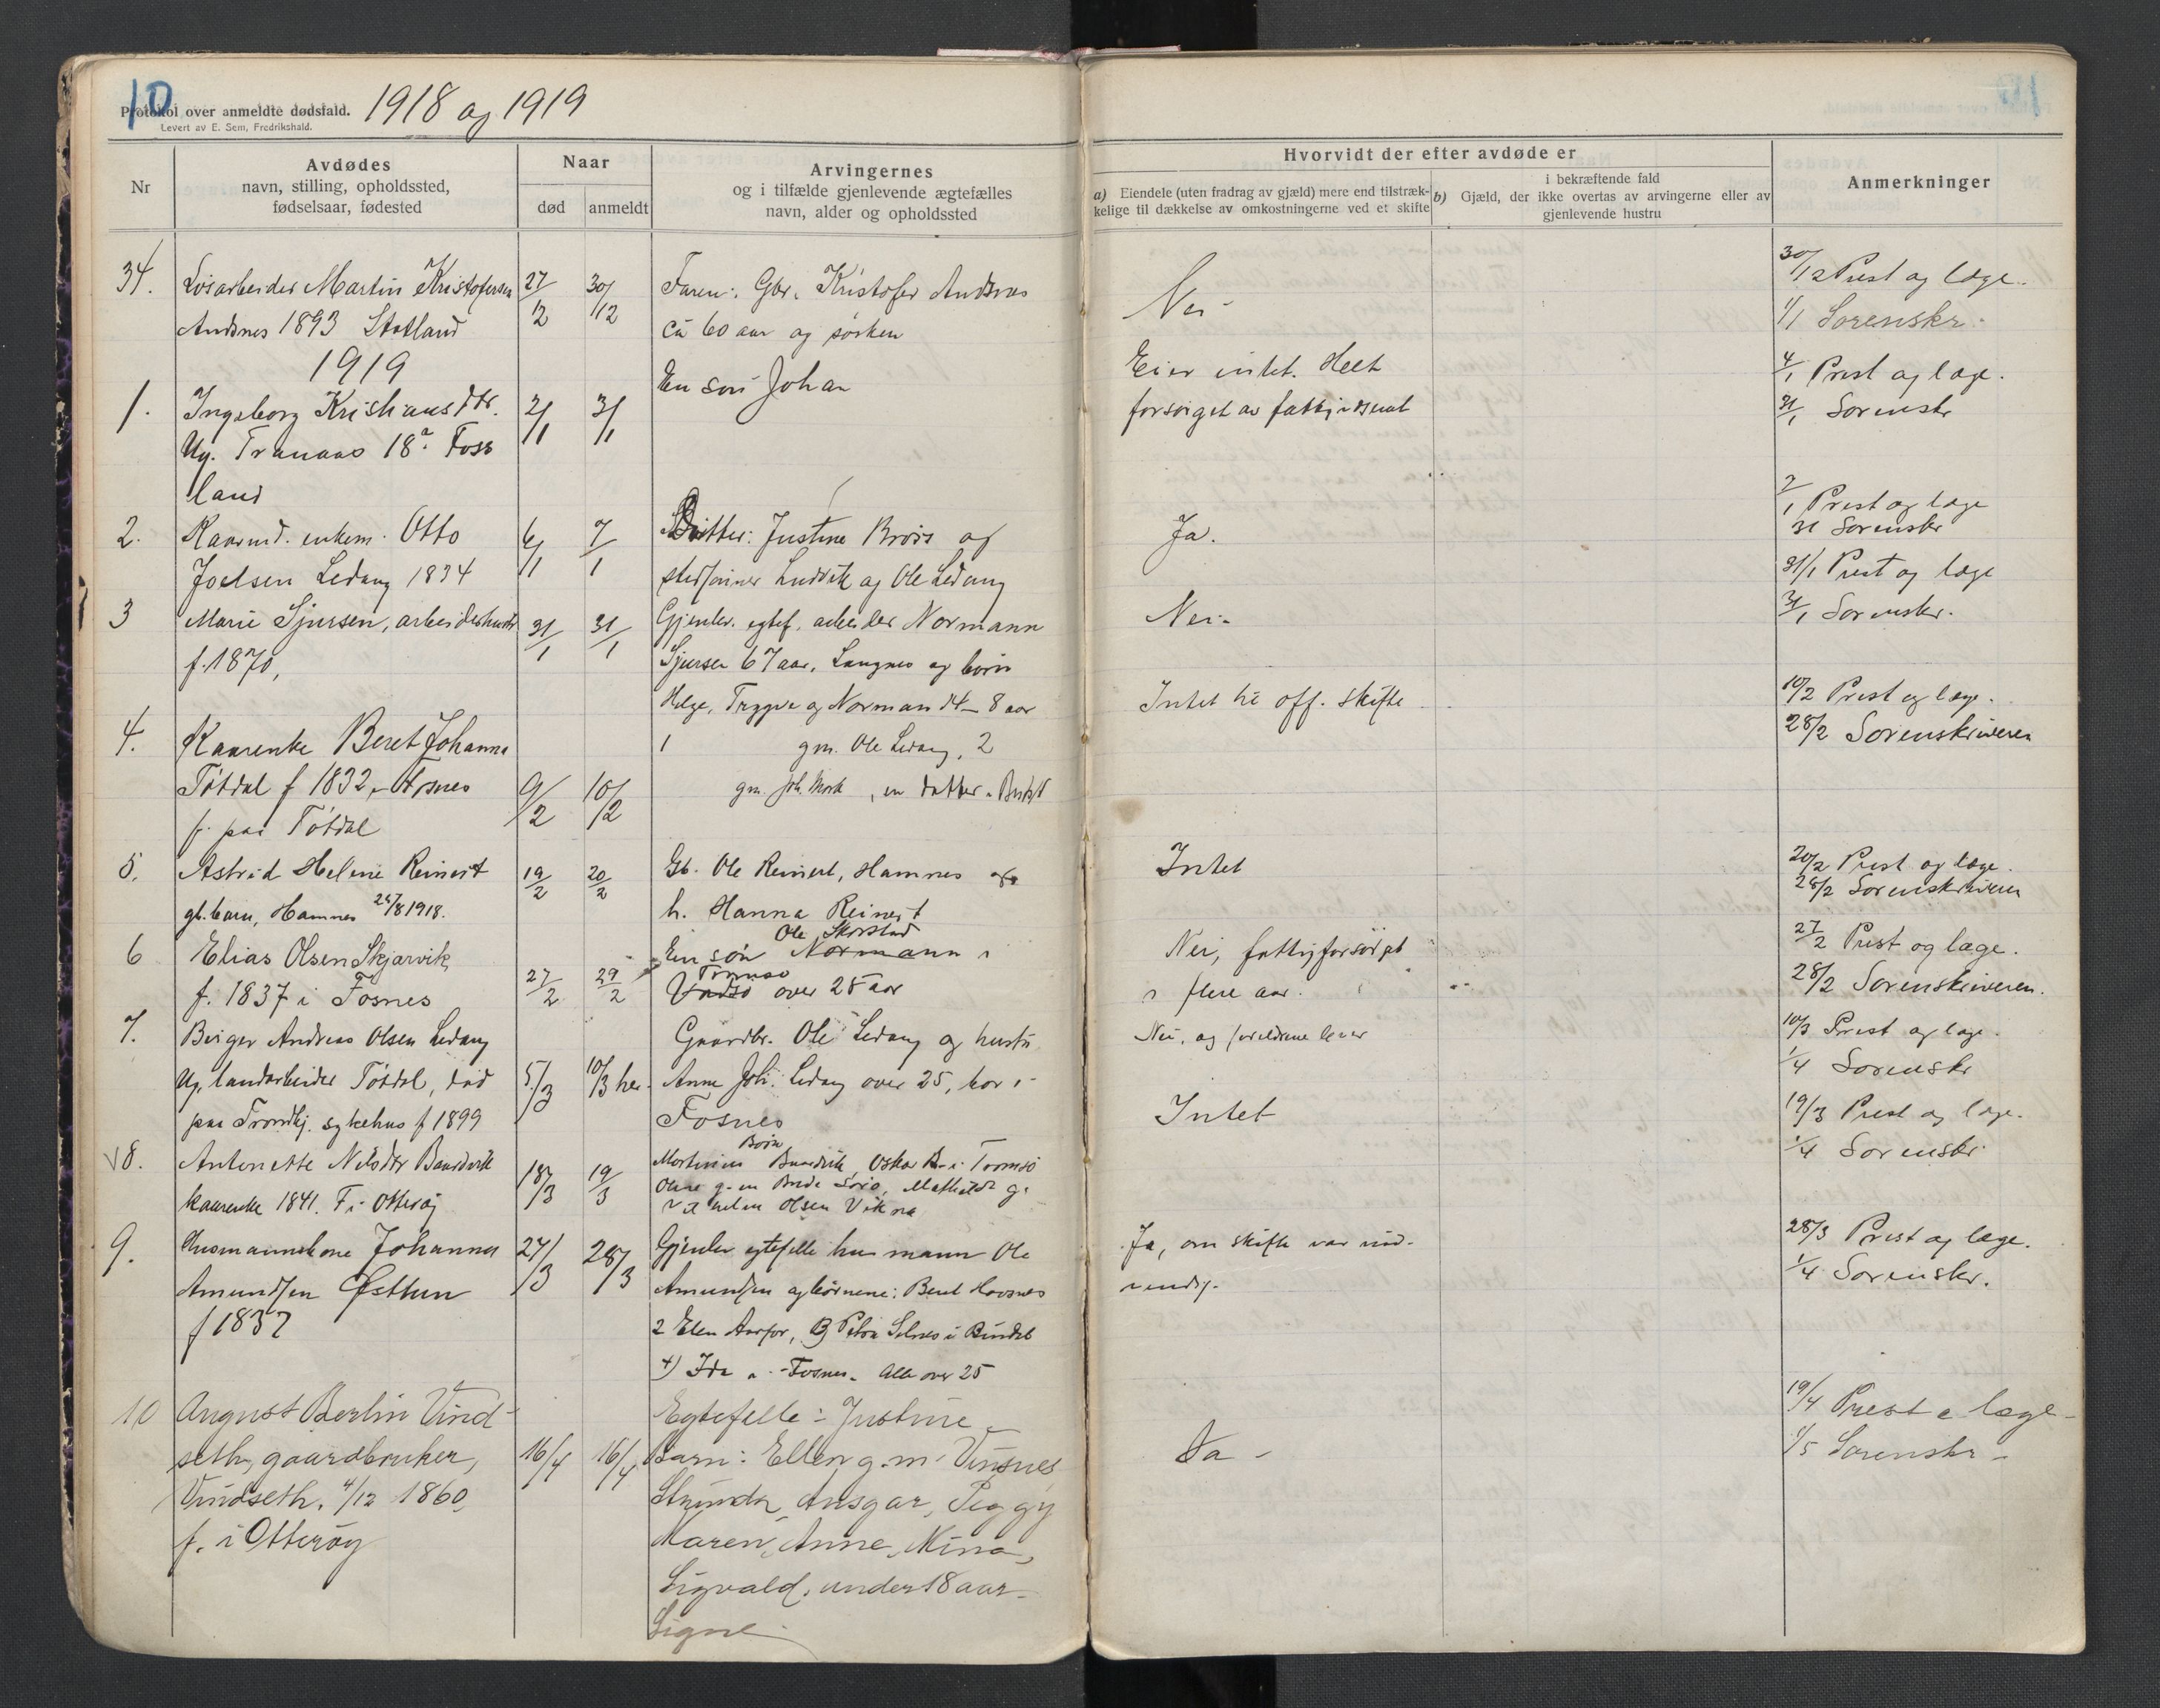 10
Protokol over anmeldte dødsfald. 1918 og 1919
Levert av E. Sem, Fredrikshald.
Nr
Avdødes
navn, stilling, opholdssted,
fødselsaar, fødested
Naar
død
anmeldt
Arvingernes
og i tilfælde gjenlevende ægtefælles
navn, alder og opholdssted
Hvorvidt der efter avdøde er
a) Eiendele (uten fradrag av gjæld) mere end tilstræk-
kelige til dækkelse av omkostningerne ved et skifte
i bekræftende fald
b) Gjæld, der ikke overtas av arvingerne eller av
gjenlevende hustru
Anmerkninger
34.
Løsarbeider Martin Kristofersen
Andsnes 1893 Statland
27/12
30/12
Faren: Gbr. Kristofer Andsnes
ca 60 aar og søsken
Nei
30/12 Prest og læge.
1/1 Sorenskr.
1919
1.
Ingeborg Kristiansdtr.
Ug. Tranaas 18 Foss
land
2/1
3/1
En søn Johan
Eier intet. Helt
forsørget av
4/1 Prest og læge.
31/1 Sorenskr
2.
Kaarmd. enkem. Otto
Joelsen Ledang 1834
6/1
7/1
Datter: Justine Brøis og
stedsønner Ludvik og Ole Ledang
Ja.
7/1 Prest og læge
31 Sorenskr
3
Marie Sjursen, arbeiderhustr
f. 1870,
31/1
31/1
Gjenlev. egtef. arbeider Normann
Sjursen 67 aar, Langnes og børn
Helge, Trygve og Norman 14 - 8 aar
Nei.
31/1 Prest og læge
31/1 Sorenskr.
4.
Kaarenke Beret Johanna
Tøtdal f 1832, Fosnes
f. paa Tøtdal
9/2
10/2
1 gm. Ole Ledang, 2
gm. Joh. Mork, en datter
Intet til off. skifte
10/2 Prest og læge.
28/2 Sorenskriveren
5.
Astrid Helene Reinert
gb. barn, Hamnes 28/8 1918.
19/2
20/2
Gb. Ole Reinert, Hamnes og
h. Hanna Reinert
Intet
20/2 Prest og læge.
28/2 Sorenskriveren
6
Elias Olsen Skjærvik
f. 1837 i Fosnes
27/2
29/2
Ole Skorstad
En søn Normann i
Tromsø
Vadsø over 25 aar
Nei, fattigforsørget
i flere aar.
27/2 Prest og læge.
28/2 Sorenskriveren.
7.
Birger Andreas Olsen Ledang
Ug. landarbeider Tøtdal, død
paa Trondhj. sykehus f 1899
5/3
10/3 her
Gaardbr. Ole Ledang og hustr.
Anne Joh. Ledang over 25, bor i
Fosnes
Nei, og foreldrene lever
10/3 Prest og læge.
1/4 Sorenskr
8.
Antonette Nilsdtr Baardvik
kaarenke 1841. F. i Otterøy
18/3
19/3
Børn
Martinius Baardvik, Oskar B. i Tromsø
Oline g. m. Sørø, Mathilde g.
Olsen Vikna
Intet
19/3 Prest og læge.
1/4 Sorenskr.
9.
Husmannskone Johanna
Amundsen Østtun
f 1837
24/3
28/3
Gjenlev egtefelle husmann Ole
Amundsen og børnene: Beret Hovsnes
2 Elen Aarfor, 3) Petra Selnes i Bindal
4) Ida i Fosnes. Alle over 25
Ja, om skifte var nød-
vendig.
28/3 Prest og læge.
1/4 Sorenskr.
10
August Berlin Vind-
seth, gaardbruker,
Vindseth, 4/12 1860,
f. i Otterøy
16/4
16/4
Egtefelle: Justine
Barn: Ellen g.m. Vinsnes
Ansgar, Peggy
Karen, Anne, Nina,
Sigvald, under 18 aar
Signe
Ja -
19/4 Prest o læge
1/5 Sorenskr -